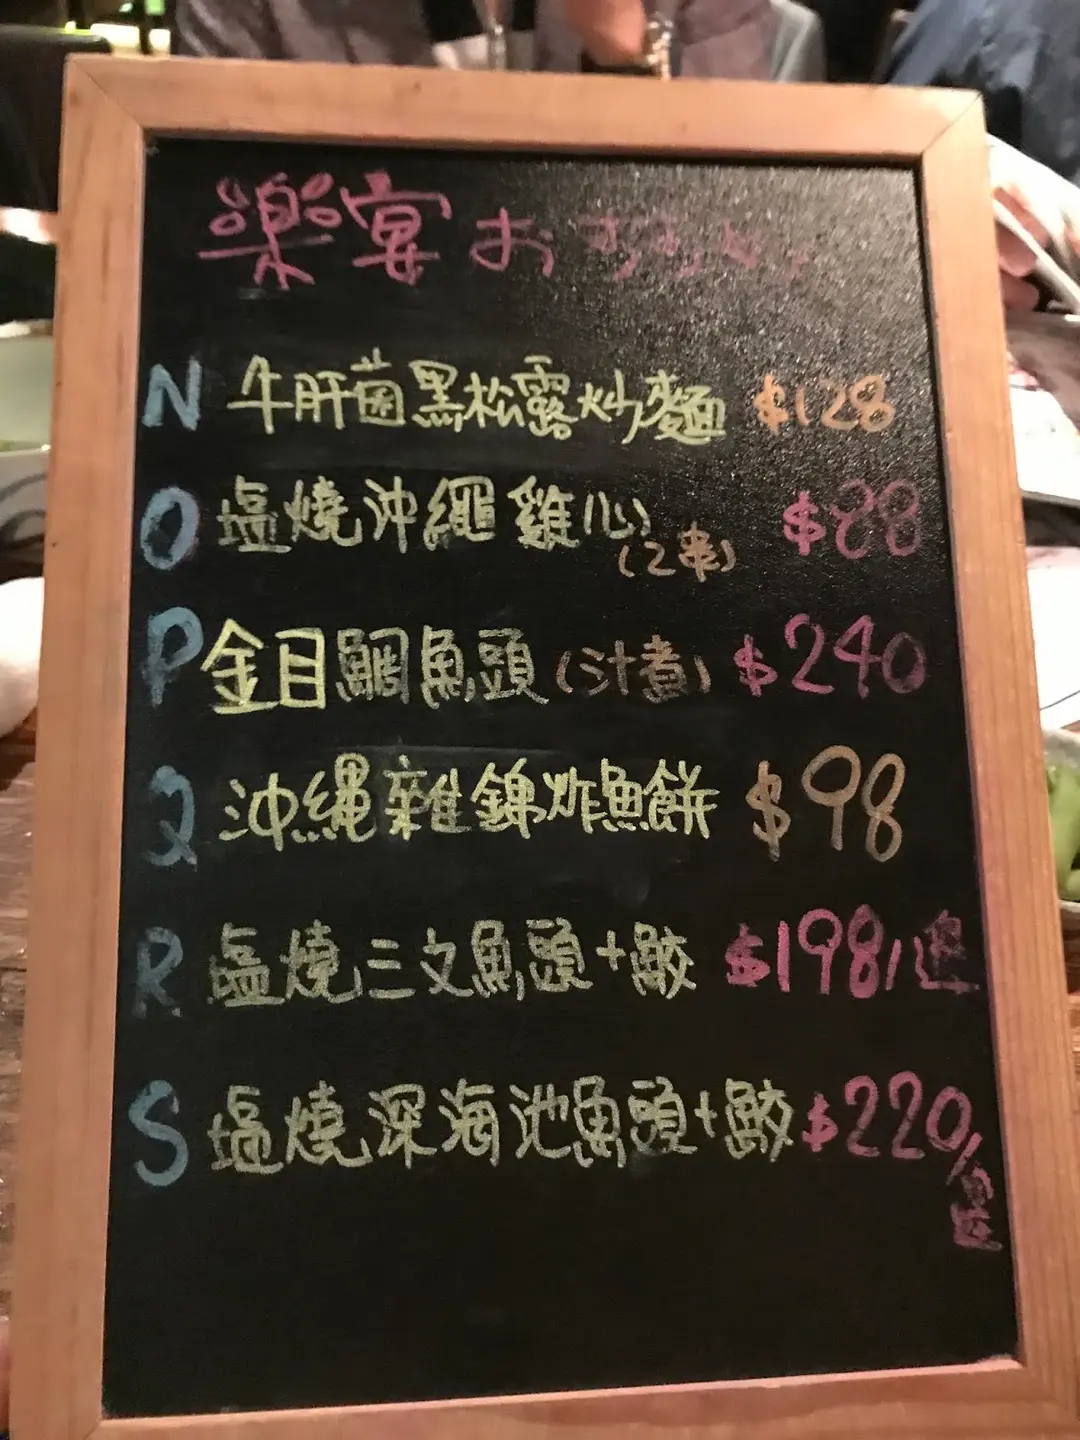 樂宴おすすめ
N 牛肝菌黑松露炒麵 $128
O 塩燒沖繩雞心 $88
(2串)
P 金目鯛魚頭(汁煮) $240
Q 沖縄雜錦炸魚餅 $98
R 塩燒三文魚頭+鮫 $198/邊
S 塩燒深海池魚頭+鮫 $220/